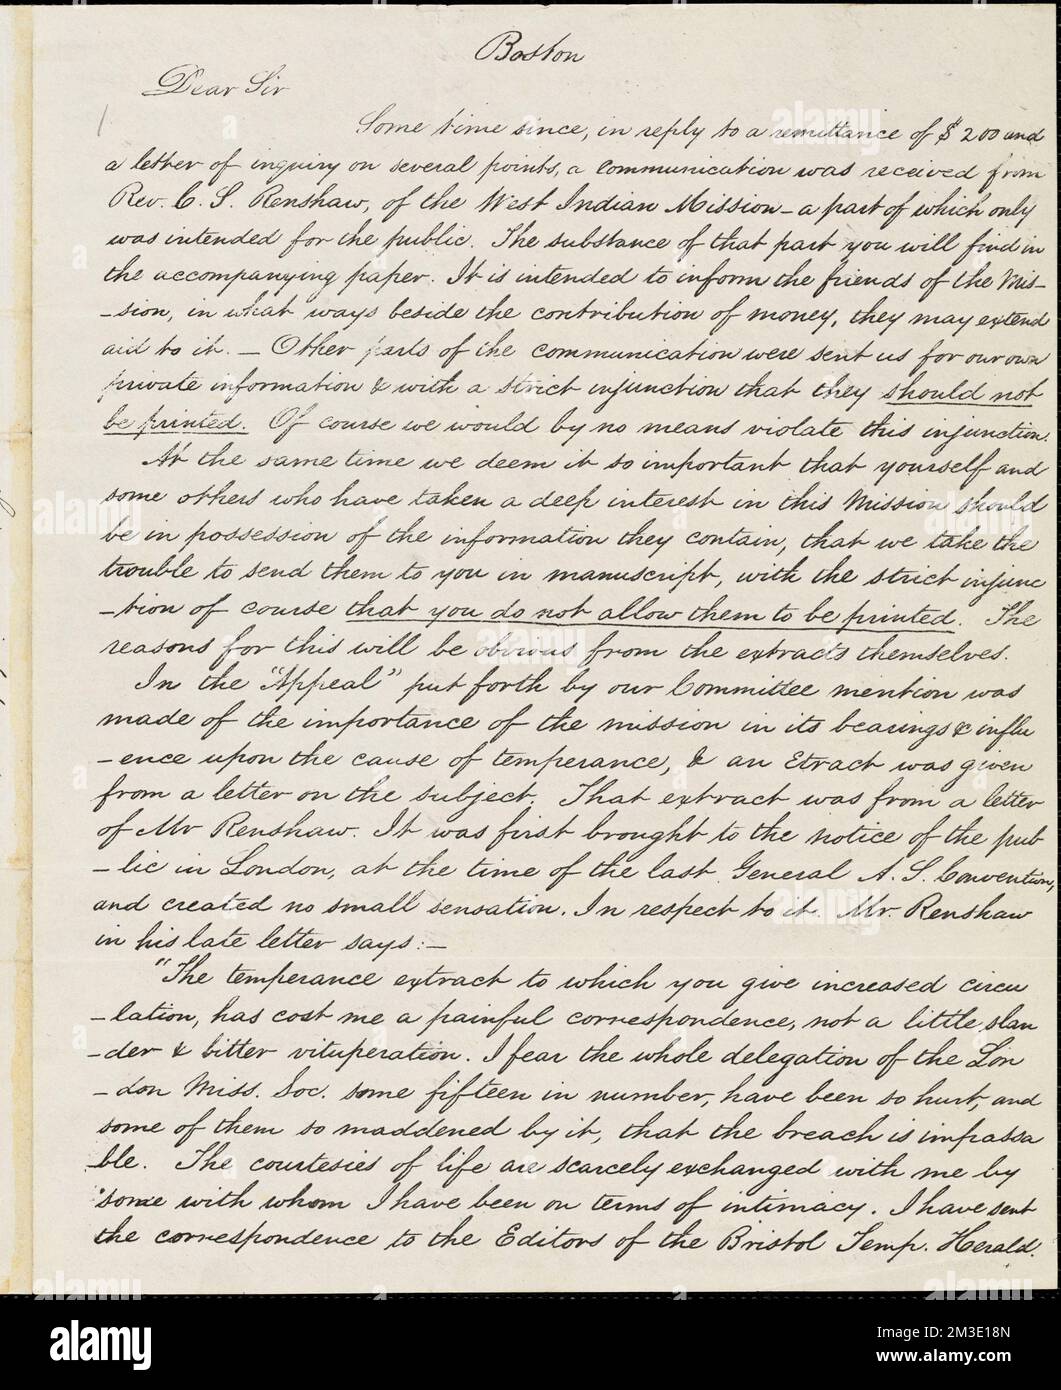 Boston
Dear Sir
Some time since, in reply to a remittance of $200 and
a letter of inquiry on several points, a communication was received from
Rev. C. S. Renshaw, of the West Indian Mission - a part of which only
was intended for the public. The substance of that part you will find in
the accompanying paper. It is intended to inform the friends of the Mis-
-sion, in what ways beside the contribution of money, they may extend
aid to it. - Other parts of the communication were sent us for our own
private information & with a strict injunction that they should not
be printed. Of course we would by no means violate this injunction.
At the same time we deem it so important that yourself and
some others who have taken a deep interest in this Mission should
be in possession of the information they contain, that we take the
trouble to send them to you in manuscript, with the strict injunc
-tion of course that you do not allow them to be printed. The
reasons for this will be obvious from the extracts themselves.
In the "Appeal" put forth by our Committee mention was
made of the importance of the mission in its bearings & influ
-ence upon the cause of temperance, & an Etract was given
from a letter on the subject. That extract was from a letter
of Mr Renshaw. It was first brought to the notice of the pub
-lic in London, at the time of the last General A. S. Convention,
and created no small sensation. In respect to it Mr. Renshaw
in his late letter says:-
"The temperance extract to which you give increased circu
-lation, has cost me a painful correspondence, not a little slan
-der & bitter vituperation. I fear the whole delegation of the Lon
-don Miss. Soc. some fifteen in number, have been so hurt, and
some of them so maddened by it, that the breach is impassa
-ble. The courtesies of life are scarcely exchanged with me by
some with whom I have been on terms of intimacy. I have sent
the correspondence to the Editors of the Bristol Temp. Herald.
alamy
Image ID: 2M3E18N
www.alamy.com